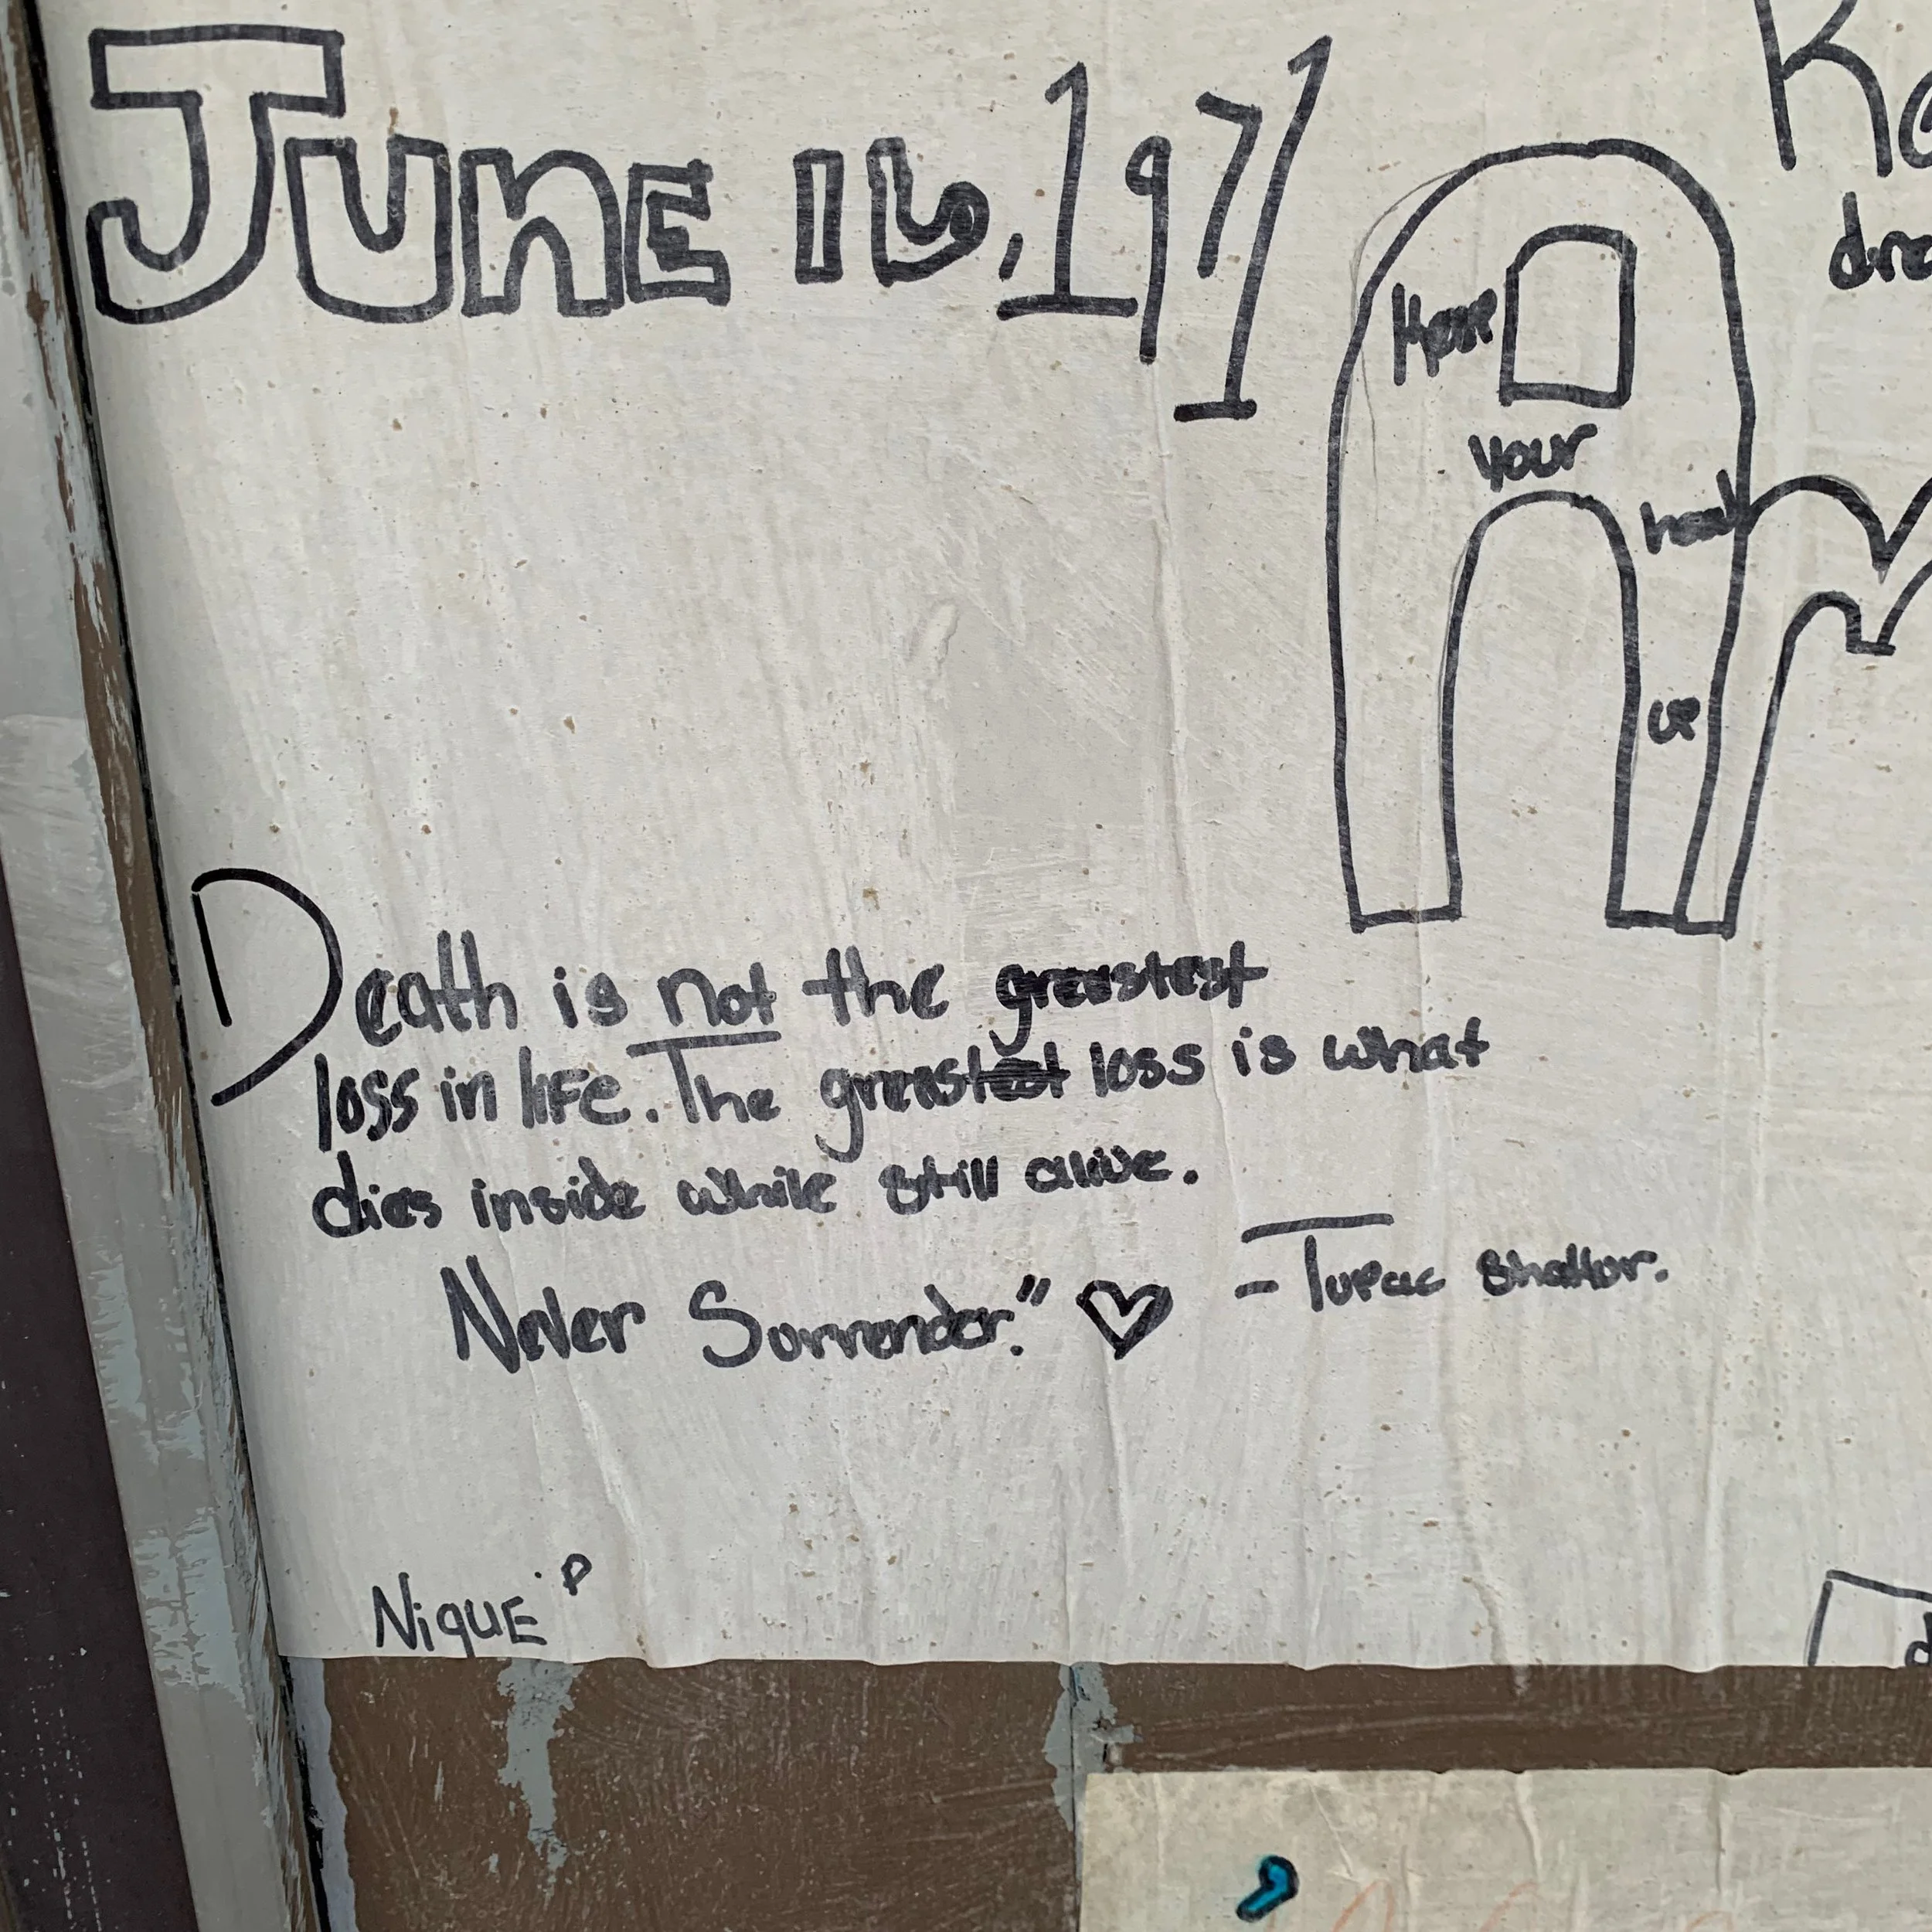 June 16, 1971
Keep
your
head
up
Death is not the greastest
loss in life. The greastest loss is what
dies inside while still alive.
Never Surrender." ♡
- Tupac Shakur.
NiquE